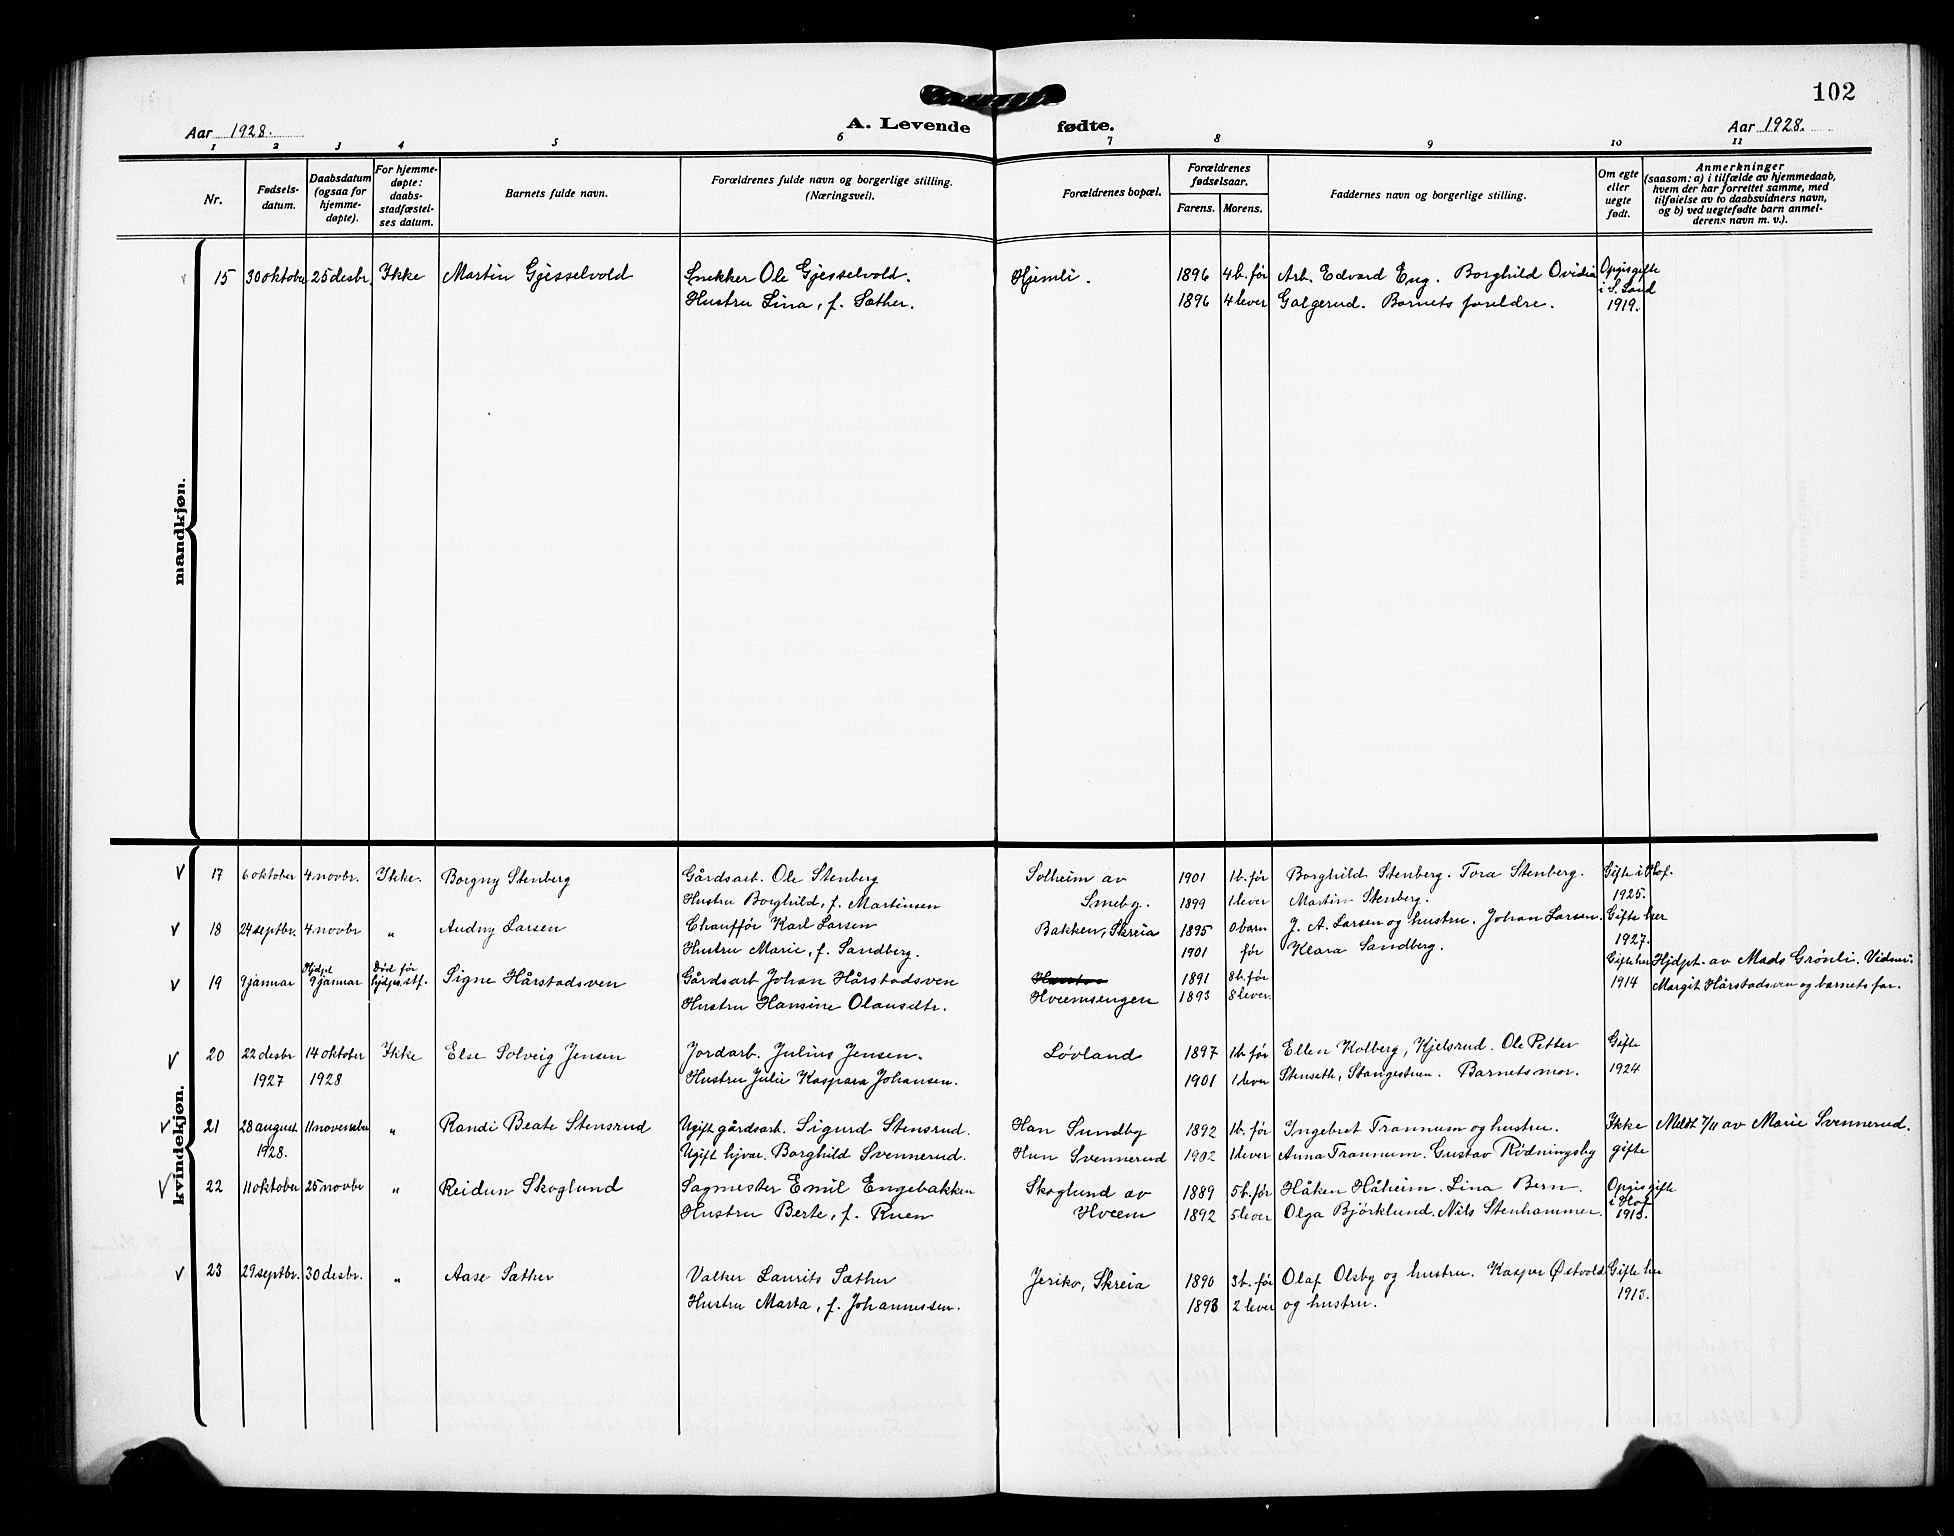 102
Aar 1928.
A. Levende fødte.
Aar 1928.
1 2 3 4 5 6 7 8 9 10 11
Nr.
Fødsels-
datum.
Daabsdatum
(ogsaa for
hjemme-
døpte).
For hjemme-
døpte:
daabs-
stadfæstel-
ses datum.
Barnets fulde navn.
Forældrenes fulde navn og borgerlige stilling.
(Næringsvei).
Forældrenes bopæl.
Forældrenes
fødselsaar.
Farens. Morens.
Faddernes navn og borgerlige stilling.
Om egte
eller
uegte
født.
Anmerkninger
(saasom: a) i tilfælde av hjemmedaab,
hvem der har forrettet samme, med
tilføielse av to daabsvidners navn,
og b) ved uegtefødte barn anmel-
derens navn m. v.).
mandkjøn.
15 30 oktober 25 desbr. Ikke Martin Gjesselvold Snekker Ole Gjesselvold. Hjemli. 1896 4 b. før Arb. Edvard Eng. Borghild Ovidia Opgis gifte
i S. Land
Hustru Lina, f. Sæther. 1896 4 lever Galgerud. Barnets foreldre. 1919.
kvindekjøn.
17 6 oktober 4 novbr. Ikke. Borgny Stenberg Gårdsarb. Ole Stenberg Solheim av 1901 1 b. før Borghild Stenberg. Tora Stenberg. Gifte i Hof.
Hustru Borghild, f. Martinsen Smeby. 1899 1 lever Martin Stenberg. 1925.
18 24 septbr. 4 novbr „ Audny Larsen Chauffør Karl Larsen Bakken, Skreia 1895 0 barn J. A. Larsen og hustru. Johan Larsen. Gifte her
Hustru Marie, f. Sandberg. 1901 før Klara Sandberg. 1927.
19 9 januar Hjdpt 9 januar Død før hjdps. stf. Signe Hårstadsven Gårdsarb Johan Hårstadsven 1891 8 b. før Gifte her Hjdpt. av Mads Grønli. Vidner:
Hustru Hansine Olausdtr. Hveemsengen 1893 8 lever. 1914 Margit Hårstadsven og barnets far.
20 22 desbr 14 oktober Ikke Else Solveig Jensen Jordarb. Julius Jensen. Løvland 1897 1 b. før Ellen Kolberg, Kjelsrud. Ole Petter Gifte
1927 1928 Hustru Julie Kaspara Johansen. 1901 1 lever Stenseth, Stangestuen. Barnets mor. 1924
21 28 august 11 november „ Randi Beate Stensrud Ugift gårdsarb. Sigurd Stensrud. Han Sundby 1892 1 b. før Ingebret Trannum og hustru. Ikke Meldt 7/11 av Marie Svennerud.
1928. Ugift hjvar. Borghild Svennerud. Hun Svennerud 1902 1 lever Anna Trannum. Gustav Rødningsby gifte
22 11 oktober 25 novbr „ Reidun Skoglund Sagmester Emil Engebakken Skoglund av 1889 5 b. før Håken Håheim. Lina Bern. Opgis gifte
i Hof
Hustru Berte, f. Ruen Hveem 1892 5 lever Olga Bjørklund. Nils Stenhammer. 1913.
23 29 septbr. 30 desbr. „ Aase Sæther Valker Laurits Sæther Jeriko, Skreia 1890 3 b. før Olaf Olsby og hustru. Kasper Østvold Gifte her
Hustru Marta, f. Johannessen. 1893 2 lever og hustru. 1913.